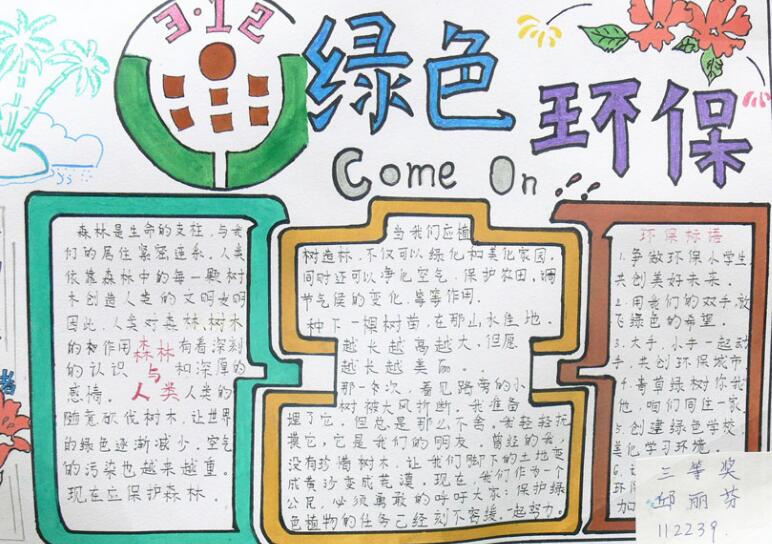 3·12
绿色
环保
Come On
森林是生命的支柱，与我
们的居住紧密连系。人类
依靠森林中的每一颗树
木创造人类的文明发明
因此，人类对森林、树木
的和作用 森林 有着深刻
的认识 与 和深厚的
感情。 人类 人类的
随意砍伐树木，让世界
的绿色逐渐减少。空气
的污染也越来越重。
现在应保护森林。
当我们应植
树造林，不仅可以绿化和美化家园，
同时还可以净化空气，保护农田，调
节气候的变化，等等作用。
种下一棵树苗，在那山水佳地，
越长越高越大，但愿
越长越美丽。
那一次，看见路旁的小
树被大风折断，我准备
埋了它。但总是那么不舍，我轻轻抚
摸它，它是我们的朋友，曾经的我，
没有珍惜树木，让我们脚下的土地变
成黄沙变成荒漠。现在，我们作为一个
公民，必须勇敢的呼吁大家：保护绿
色植物的任务已经刻不容缓，一起努力。
环保标语
1. 争做环保小学生，
共创美好未来。
2. 用我们的双手放
飞绿色的希望。
3. 大手，小手一起动
手，共创环保城市
4. 尊尊绿树你我
他，咱们同住一家
5. 创建绿色学校，
美化学习环境。
6.
环保
加
三等奖
邱丽芬
112239.